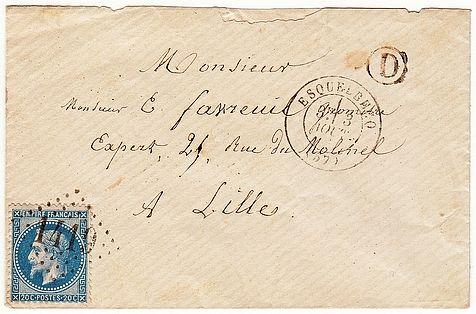 Monsieur
D
Monsieur E. Favreuil Géomètre
Expert, 25, Rue du Molinel
A Lille.
ESQUELBECQ
3
AOUT
(57)
EMPIRE FRANÇAIS
1419
20C·POSTES·20C